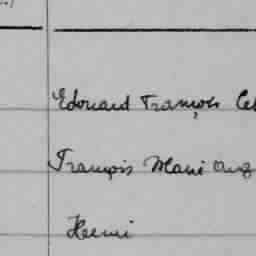 Edouard François Cel
François Marie Aug
Henri